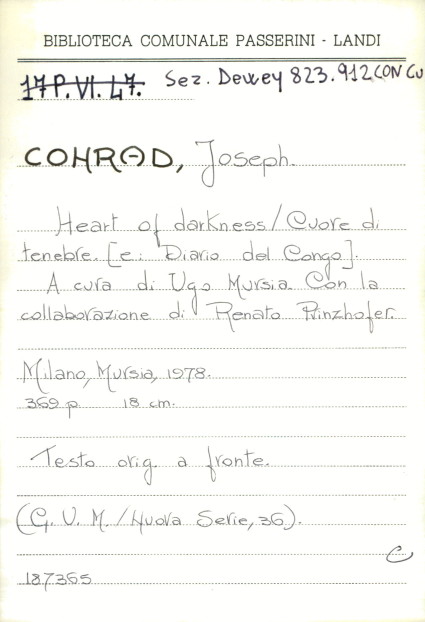 BIBLIOTECA COMUNALE PASSERINI - LANDI
17 P. VI. 47. Sez. Dewey 823.912 CON Cu
CONRAD, Joseph.
Heart of darkness/Cuore di
tenebre. [e: Diario del Congo].
A cura di Ugo Mursia. Con la
collaborazione di Renato Prinzhofer.
Milano, Mursia, 1978.
369 p. 18 cm.
Testo orig. a fronte.
(G. U. M./Nuova Serie, 36).
C
187365